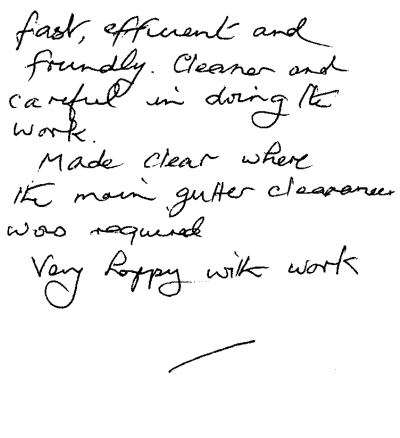 fast, efficient and
friendly. Cleaner and
careful in doing the
work.
Made clear where
the main gutter clearance
was required
Very happy with work